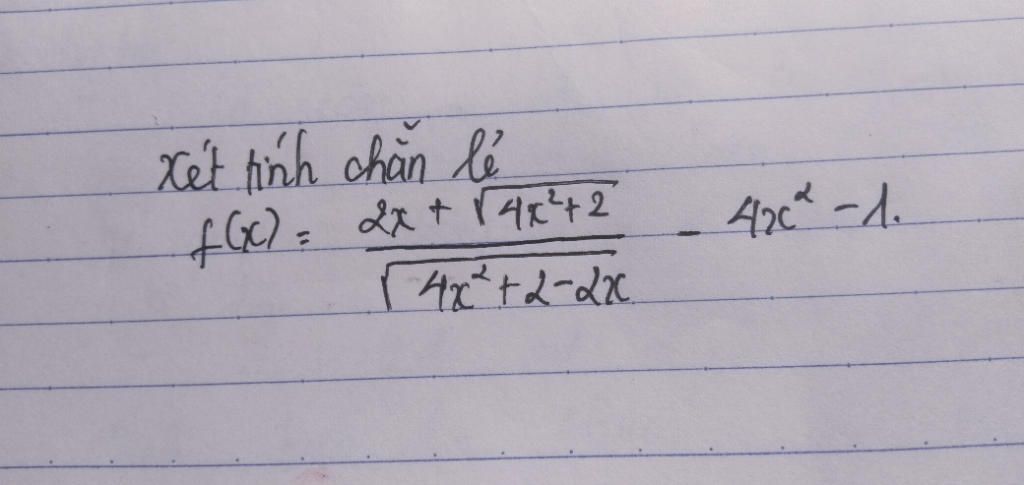 Xét tính chẵn lẻ
f(x) = \frac{2x + \sqrt{4x^2+2}}{\sqrt{4x^2+2-2x}} - 4x^2 - 1.